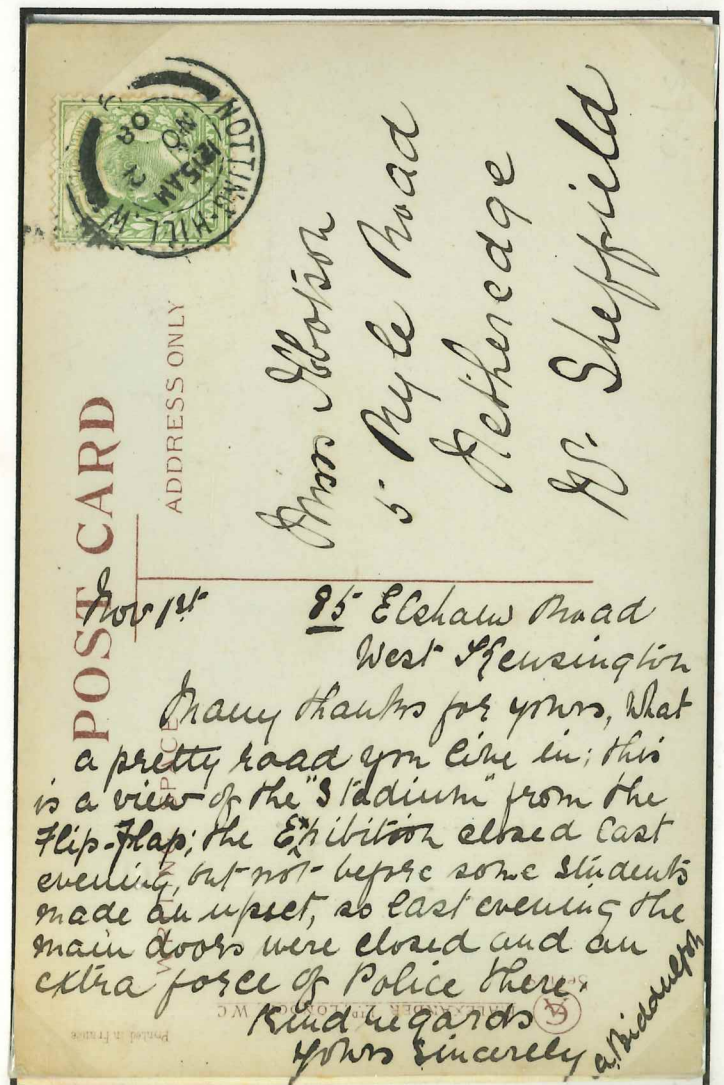 NOTTING-HILL.W
12.15AM
NO 2
08
POST CARD
ADDRESS ONLY
Miss Ibbotson
5 Ryle Road
Netheredge
Nr. Sheffield
Nov 1st 85 Elsham Road
West Kensington
Many thanks for yours, what
a pretty road you live in; this
is a view of the "Stadium" from the
Flip-Flap; the Exhibition closed last
evening, but not before some students
made an upset, so last evening the
main doors were closed and an
extra force of Police there.
Kind regards
Yours sincerely
A. Biddulph
ALEXANDER LTD, LONDON, W.C.
Printed in France